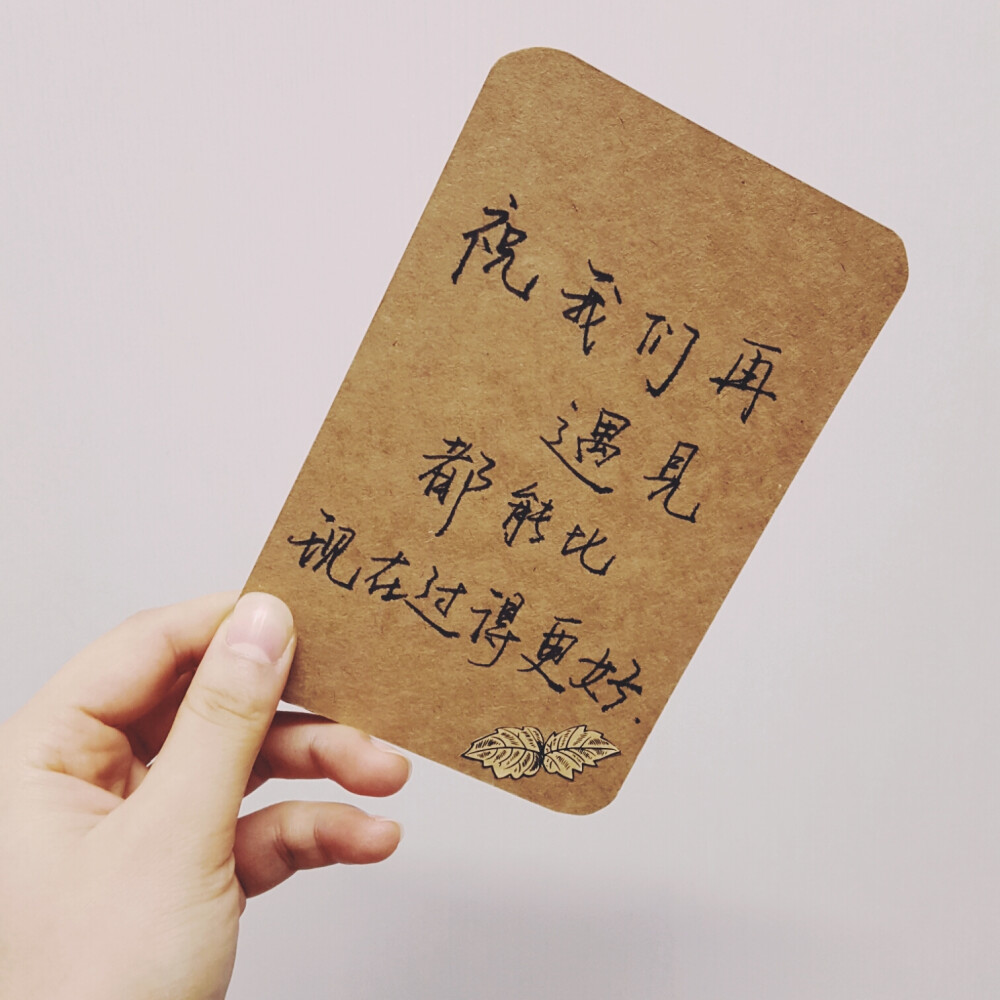 祝我们再
遇见
都能比
现在过得更好.